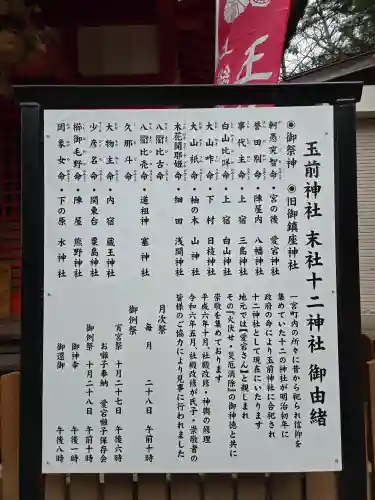 玉前神社 末社十二神社 御由緒
◉御祭神 ◉旧御鎮座神社
軻愚突智命・宮の後 愛宕神社
誉田別命・陣屋内 八幡神社
事代主命・上宿 三島神社
白山比咩命・上宿 白山神社
大山咋命・下村 日枝神社
大山祇命・柚の木 山神社
木花開耶姫命・畑田 浅間神社
八衢比古命
八衢比売命・道祖神 塞神社
久那斗命
大物主命・内宿 蔵王神社
少彦名命・関東台 粟島神社
櫛御毛野命・陣屋 熊野神社
罔象女命・下の原 水神社
一宮町内の所々に昔から祀られ信仰を
集めていた十二の神社が明治初年に
政府の命により玉前神社に合祀され
十二神社として現在にいたります
地元では『愛宕さん』と親しまれ
その『火伏せ・災厄消除』の御神徳と共に
崇敬を集めております
平成六年十月、社殿改修・神輿の修理
令和六年五月、社殿改修が氏子・崇敬者の
皆様のご協力により見事に行われました
月次祭
毎月 二十八日 午前十時
御例祭
宵宮祭 十月二十七日 午後六時
お囃子奉納 愛宕囃子保存会
御例祭 十月二十八日 午前十時
御神幸 午後一時
御還御 午後八時
玉